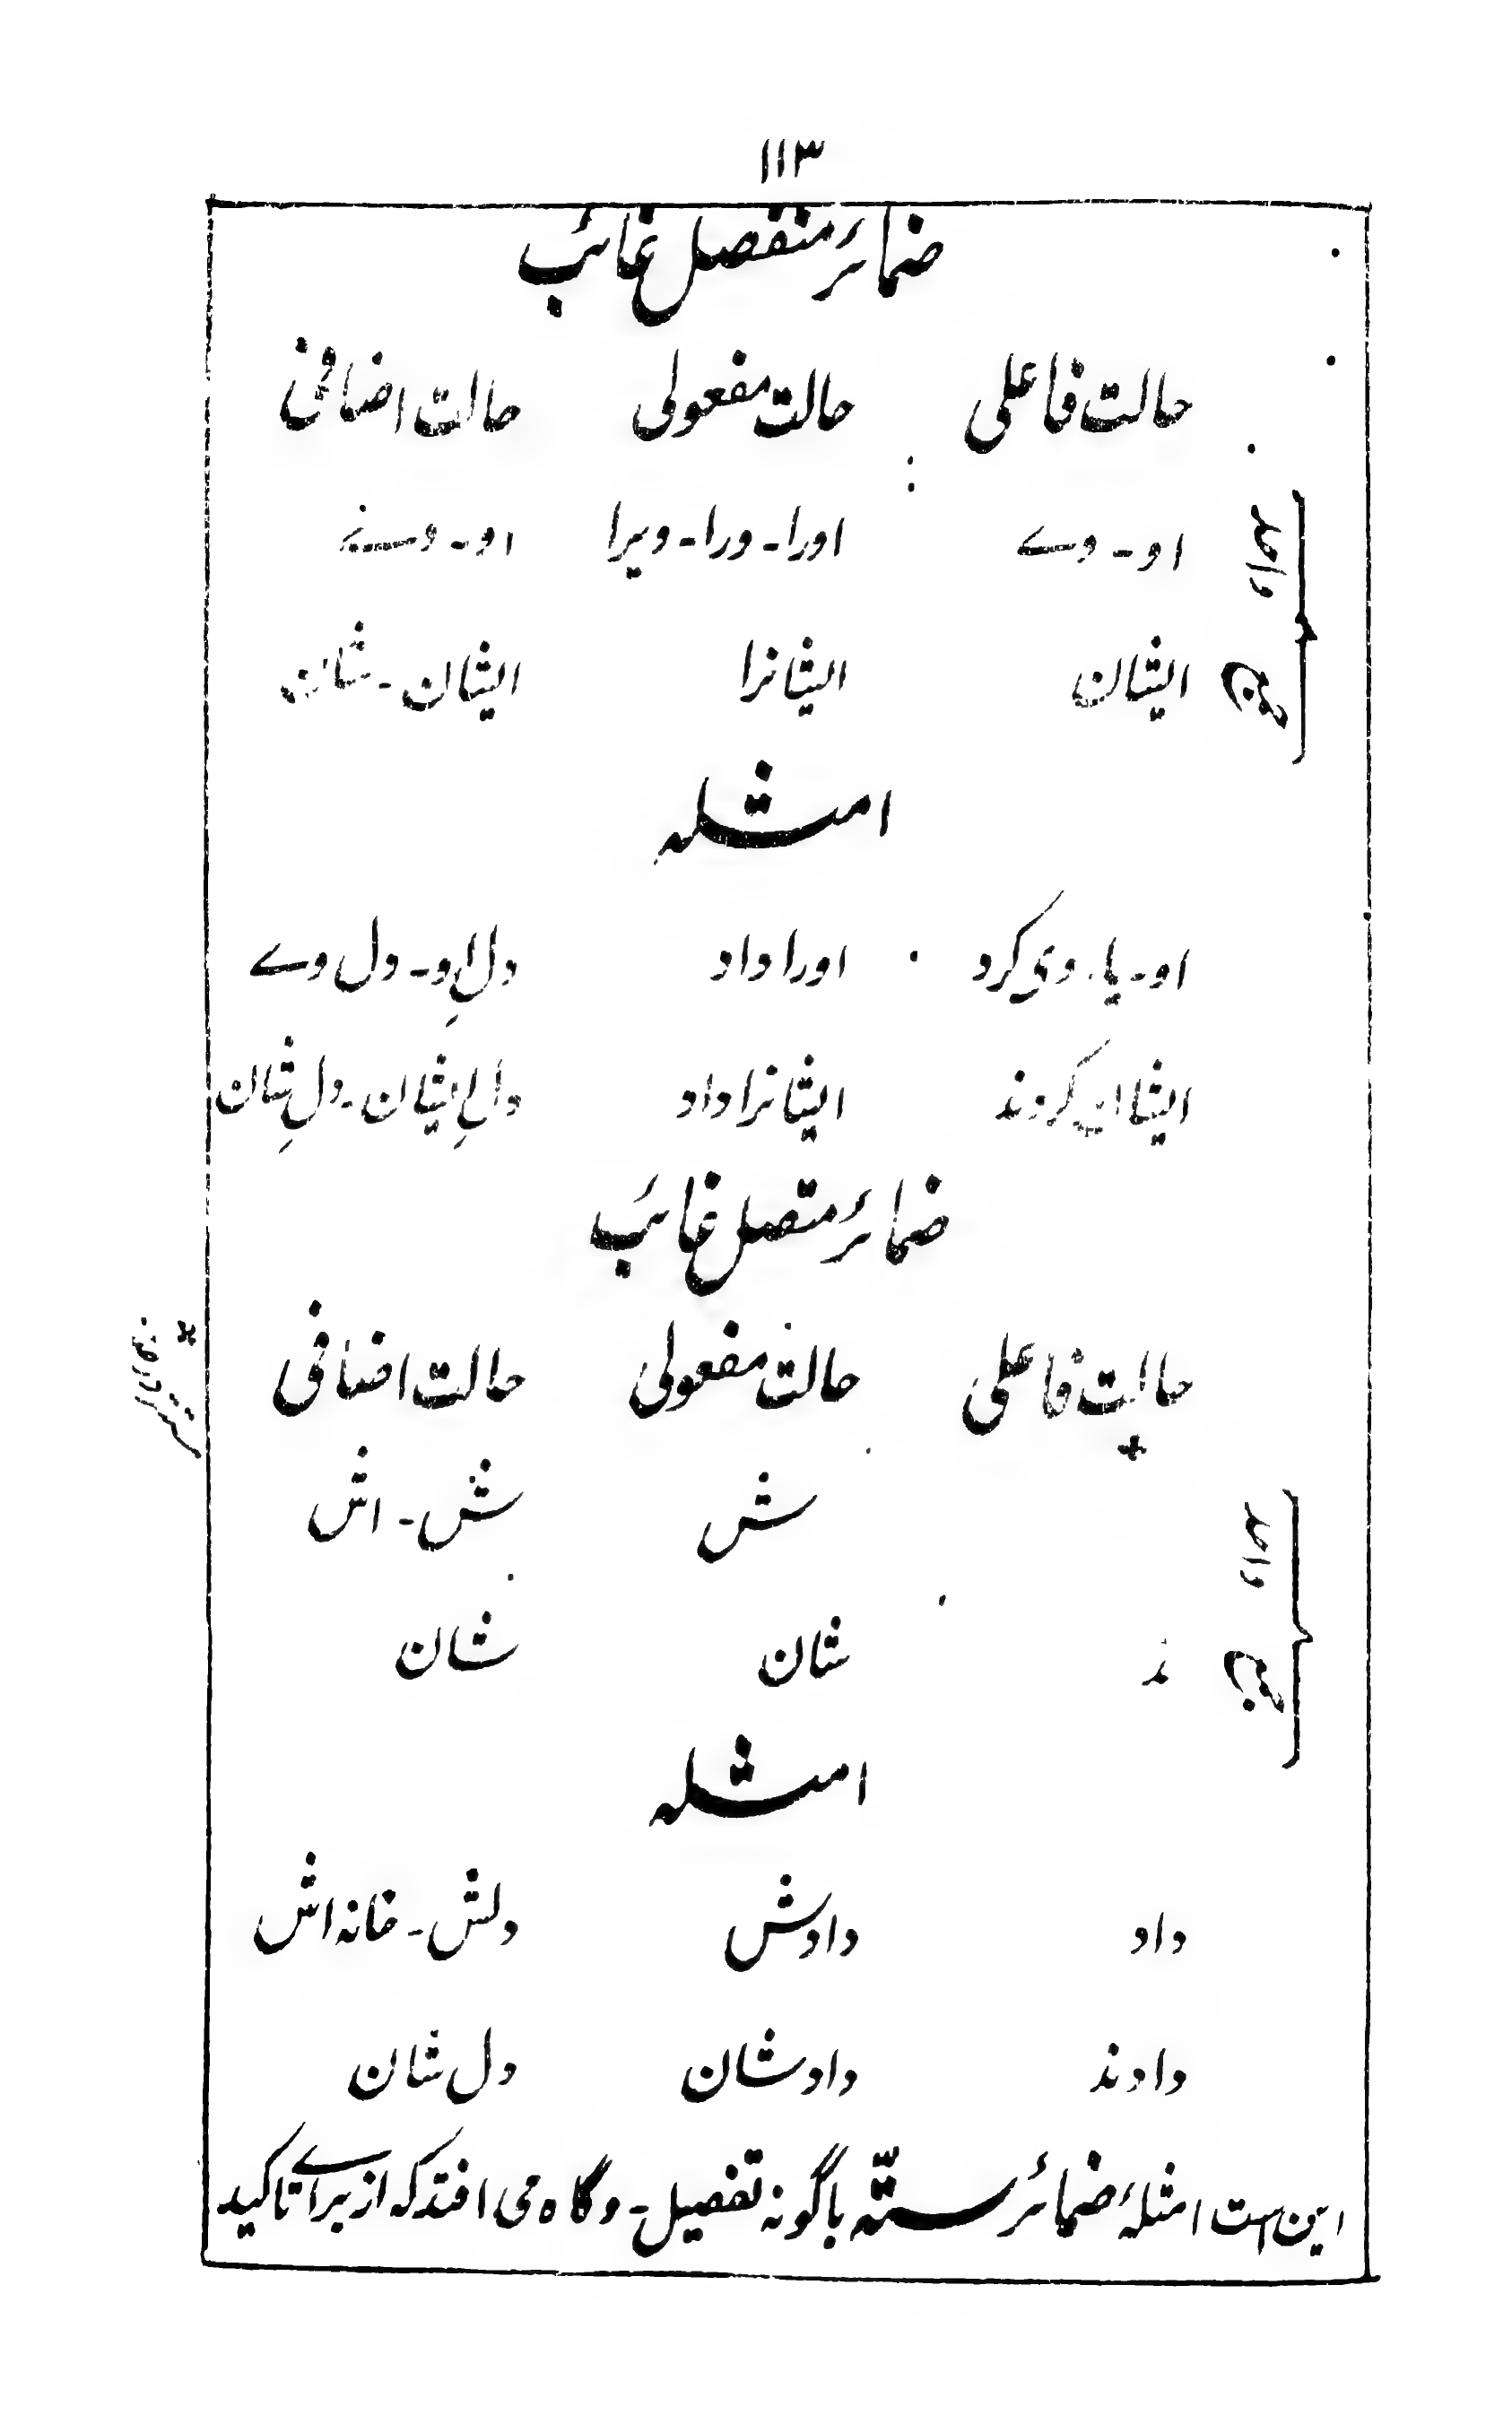 ۱۱۳
ضمائر منفصل غائب
حالت فاعلی حالت مفعولی حالت اضافی
واحد او - وے اورا - ورا - ویرا او - وے
جمع ایشان ایشانرا ایشان - شان
امثله
او - یا - وی کرد اورا داد دلِ او - دل وے
ایشان کردند ایشانرا داد دلِ ایشان - دلِ شان
ضمائر متصل غائب
حالت فاعلی حالت مفعولی حالت اضافی
واحد ش ش - اش
جمع ند شان شان
امثله
داد دادش دلش - خانه اش
دادند دادشان دل شان
این است امثلهٔ ضمائر ستّه باگونه تفصیل - وگاه می افتد که از براے تاکید